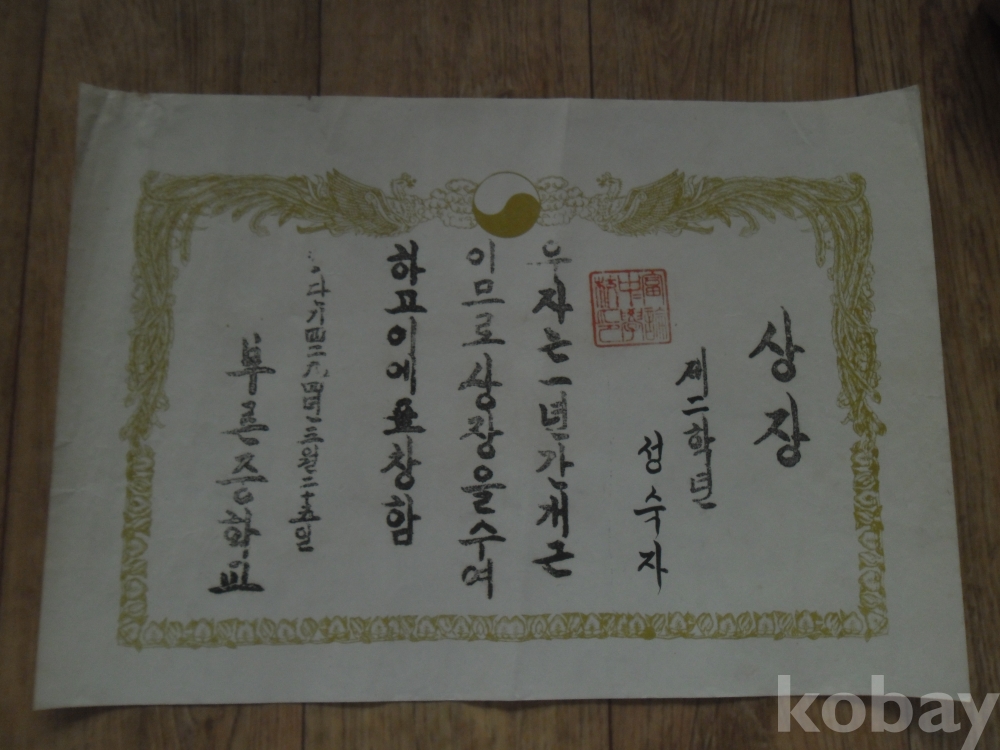 상장
제二학년
성수자
우자는一년간개근
이므로상장을수여
하고이에표창함
기四二九四년三월二十五일
부론중학교
kobay